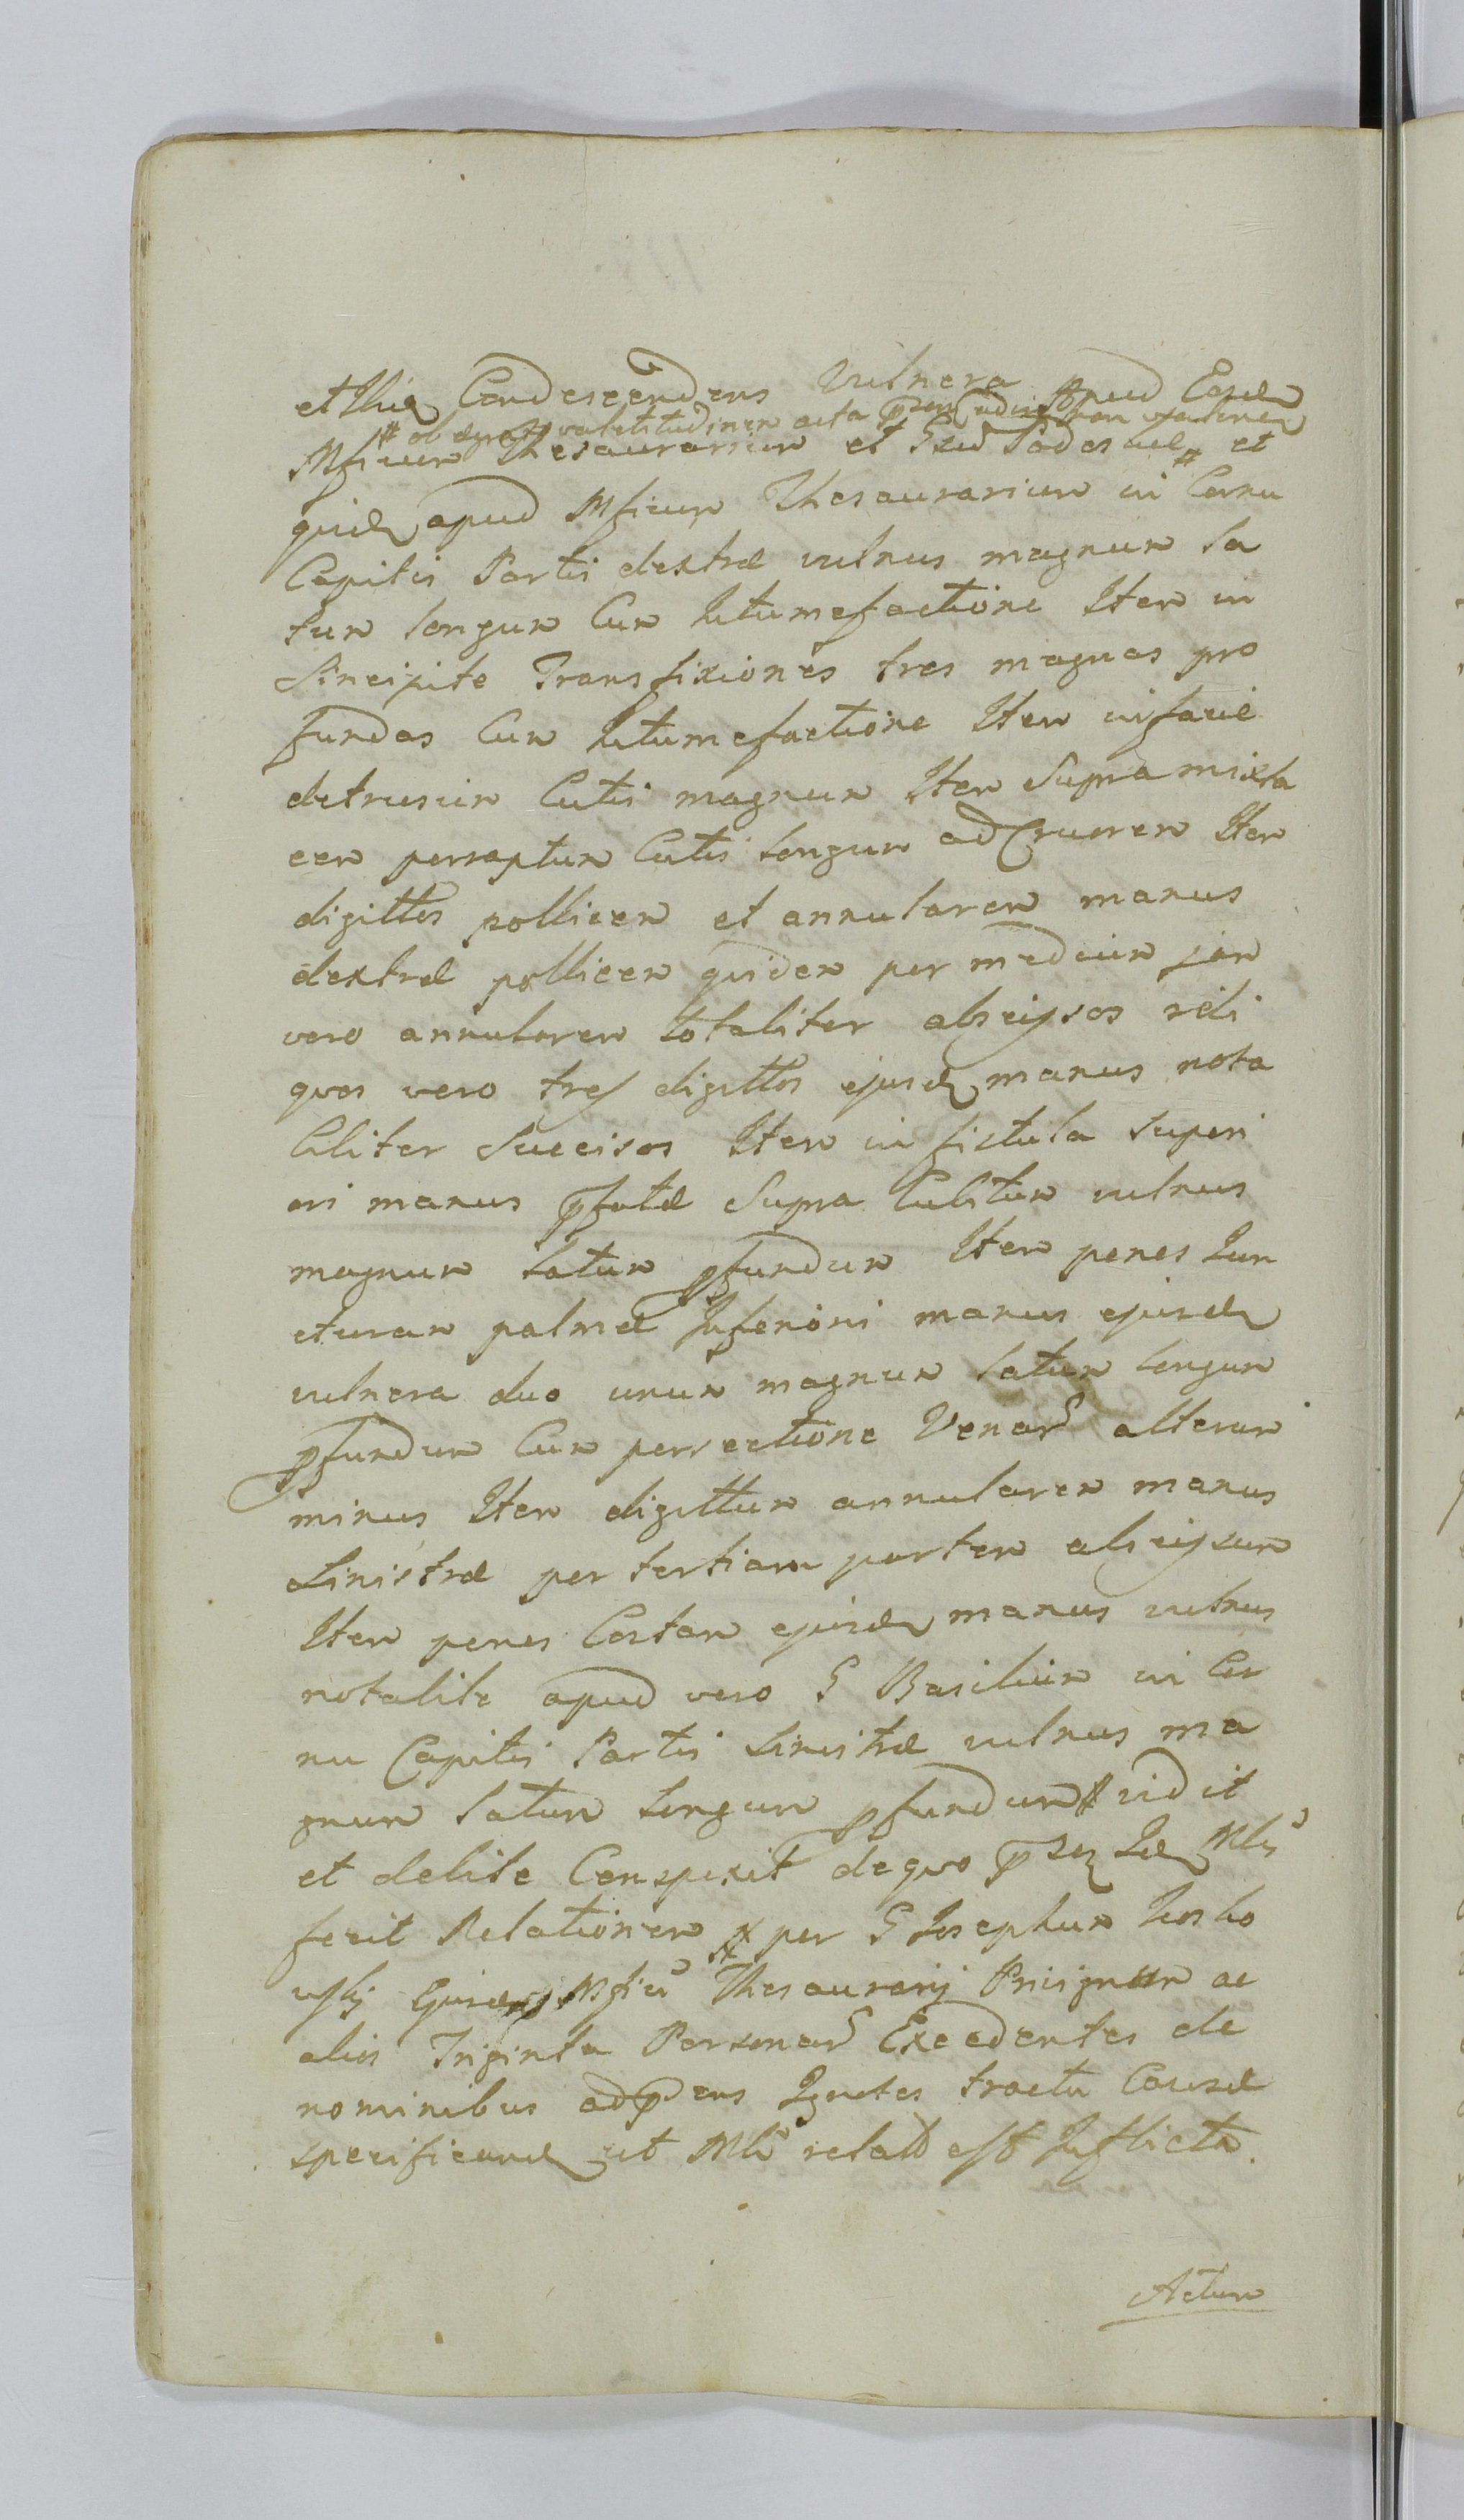 et Illuc Condescendens Vulnera apud Eosd
# ob aegram valetitudinem acta praesen adire non valenes
Mficum Thesaurarium et Gsum Podosue # et
quid apud Mficum Thesaurarium in Cornu
Capitis Partis dextrae vulnus magnum la
tum longum Cum Intumefactione Item in
Sincipite Transfixiones tres magnas pro
fundas Cum Intumefactione Item in facie
detrusum Cutis magnum Item Supra mixta
cem perraptum Cutis longum ad Cruorem Item
digittos pollicem et annularem manus
dextrae pollicem quidem per medium jam
vero annularem totaliter abscissos reli
quos vero tres digittos ejusd manus nota
biliter Succisos Item in fistula Superi
ori manus pfatae Supra Cubitum vulnus
magnum latum pfundum Item penes Iun
cturam palmae Inferiori manus ejusd
vulnera duo unum magnum latum longum
pfundum Cum persectione Venar alterum
minus Item digittum annularem manus
Sinistrae per tertiam partem abscissum
Item penes Costam ejusd manus vulnus
notabile apud vero G Basilium in Cor
nu Capitis Partis Sinistrae vulnus ma
gnum latum longum pfundum vidit
et debite Conspexit de quo psen Id Mlis
fecit Relationem # per G Josephum
Ejusd Mfici Thesaurarij Privignum ac
alios Triginta Personar Excedentes de
nominibus ad pens Ignotes tractu Causae
specificand ut Mli relatu est Inflicta.
Actum